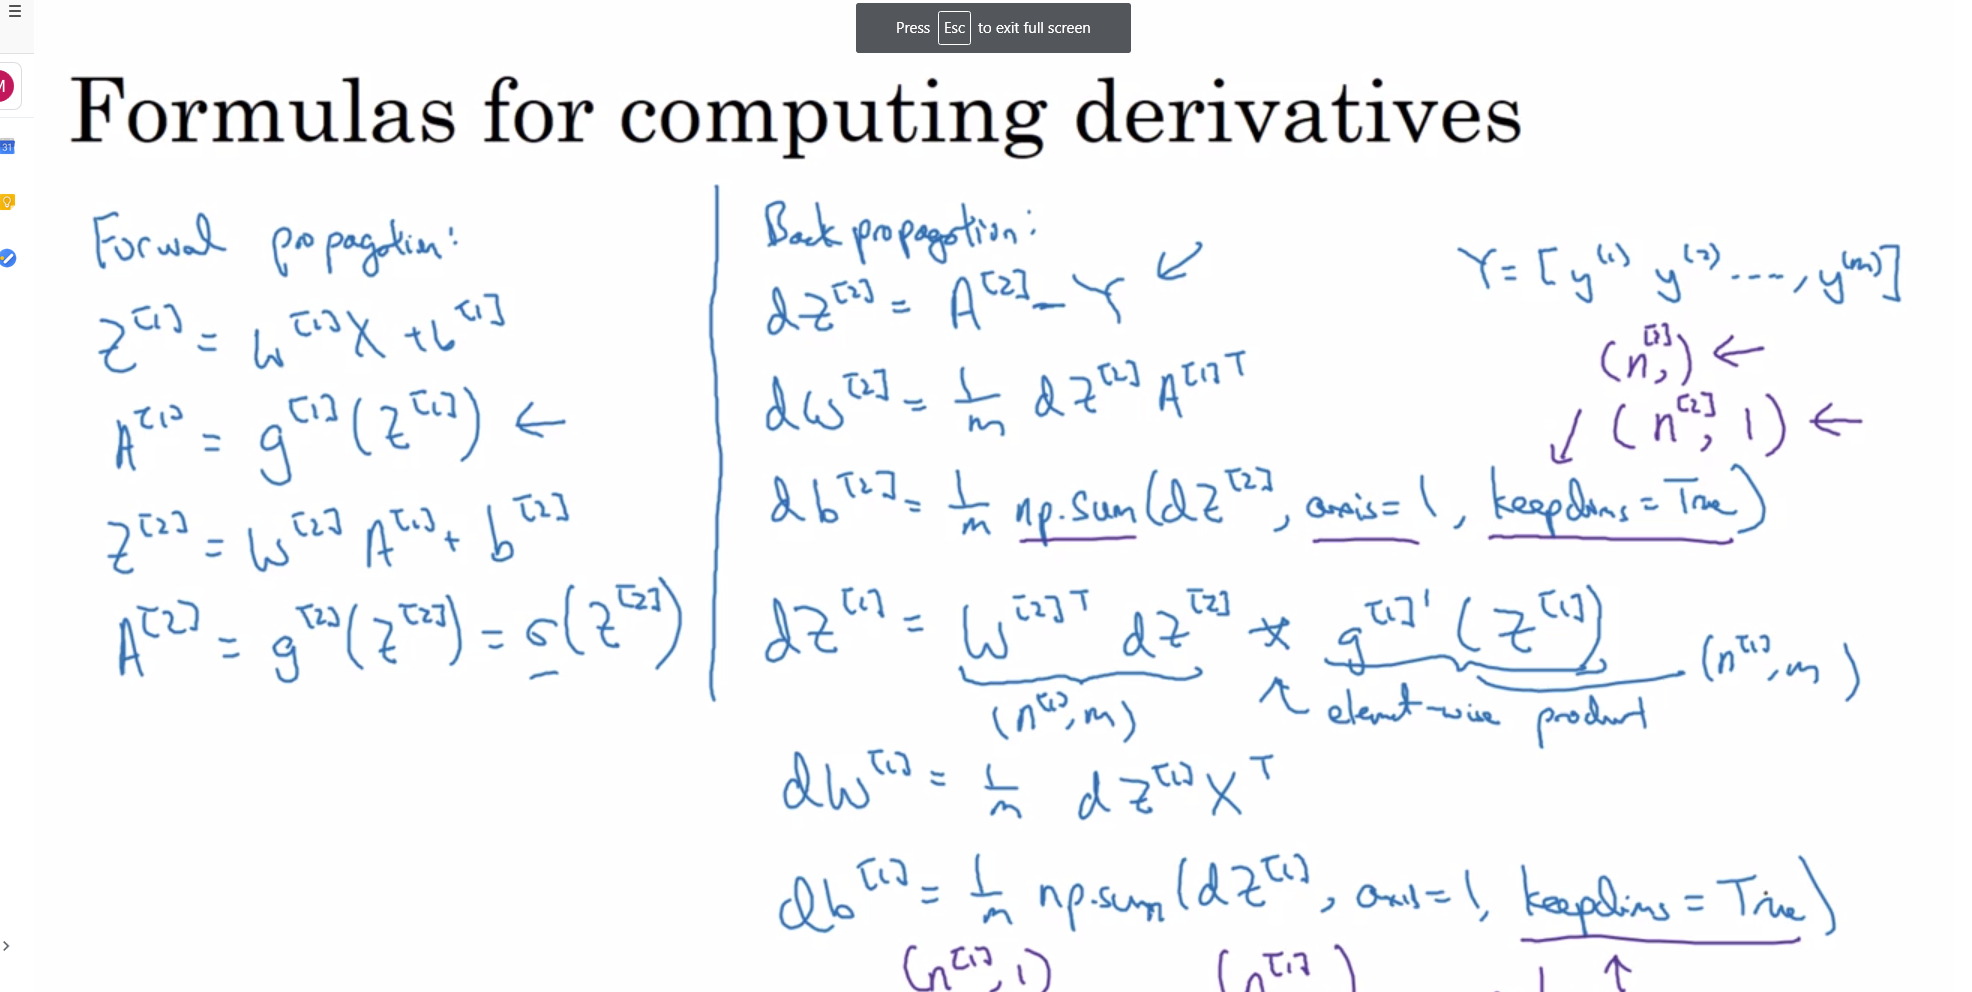 Press Esc to exit full screen
M
31
Formulas for computing derivatives
Forwal propagation:
Z^[1] = W^[1]X + b^[1]
A^[1] = g^[1](Z^[1]) ←
Z^[2] = W^[2] A^[1] + b^[2]
A^[2] = g^[2](Z^[2]) = σ(Z^[2])
Back propagation:
dZ^[2] = A^[2] - Y ↙
Y = [y^(1) y^(2) ...., y^(m)]
dW^[2] = 1/m dZ^[2] A^[1]T
(n^[2],) ←
↓ (n^[2], 1) ←
db^[2] = 1/m np.sum(dZ^[2], axis=1, keepdims=True)
dZ^[1] = W^[2]T dZ^[2] * g^[1]'(Z^[1])
(n^[1], m) ↑ element-wise product (n^[1], m)
dW^[1] = 1/m dZ^[1] X^T
db^[1] = 1/m np.sum(dZ^[1], axis=1, keepdims=True)
(n^[1], 1) (n^[1] ) ↑